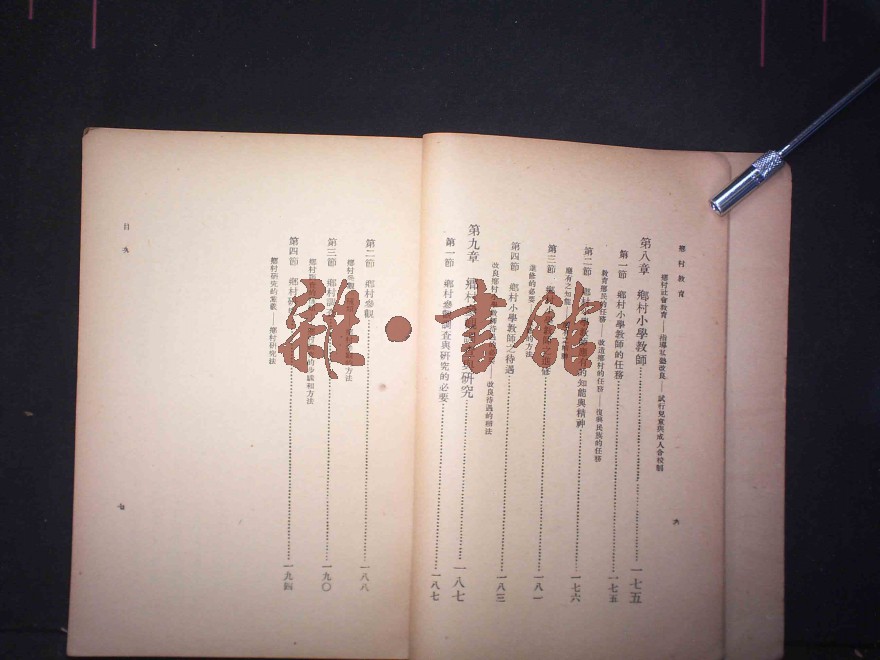 鄉村教育
鄉村社會教育——指導私塾改良——試行兒童與成人合校制
第八章 鄉村小學教師 一七五
第一節 鄉村小學教師的任務 一七五
教育鄉民的任務——改造鄉村的任務——復興民族的任務
第二節 鄉村 的知能與精神 一七六
應有之知能
第三節 鄉村小 修 一八一
進修的必要 的方法
第四節 鄉村小學教師之待遇 一八三
改良鄉村 教師待遇的 ——改良待遇的辦法
第九章 鄉村 與研究 一八七
第一節 鄉村參觀調查與研究的必要 一八七
六
目次
第二節 鄉村參觀 一八八
鄉村參觀 方法
第三節 鄉村調查 一九〇
鄉村調查 的步驟和方法
第四節 鄉村研究 一九四
鄉村研究的意義——鄉村研究法
七
雜·書館